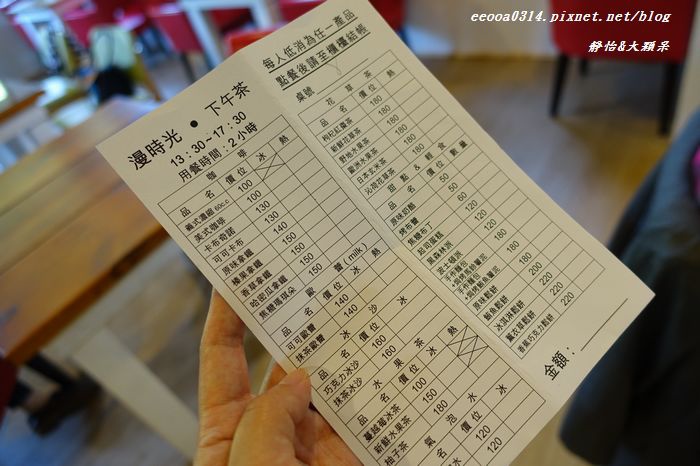 eeooa0314.pixnet.net/blog
靜怡&大顆呆
漫時光 • 下午茶
13:30~17:30
用餐時間:2小時
咖啡
品名 價位 冰 熱
義式濃縮 60c.c 100
美式咖啡 100
卡布奇諾 130
可可卡布 130
原味拿鐵 130
榛果拿鐵 150
香草拿鐵 150
哈密瓜拿鐵 150
焦糖瑪琪朵 150
歐蕾(milk)
品名 價位 冰 熱
可可歐蕾 140
抹茶歐蕾 140
冰沙
品名 價位 冰
巧克力冰沙 160
抹茶冰沙 160
水果茶
品名 價位 冰 熱
蔓越莓冰茶 100
新鮮水果茶 150
柚子茶 180
氣泡水
品名 價位 冰
120
120
每人低消為任一產品
點餐後請至櫃檯結帳
桌號
花草茶
品名 價位 熱
枸杞紅棗茶 180
新鮮花草茶 180
對地水果茶 180
歐洲水果茶 180
日本玄米茶 180
沁荷花草茶 180
甜點&輕食
品名 價位 數量
原味奶酪 50
烤布蕾 50
焦糖布丁 60
起司蛋糕 120
黑森林派 120
波士頓派 120
手作麵包
手作麵包
原味鬆餅 180
鮪魚鬆餅 200
冰淇淋鬆餅 220
薰衣草鬆餅 220
香蕉巧克力鬆餅 220
金額: